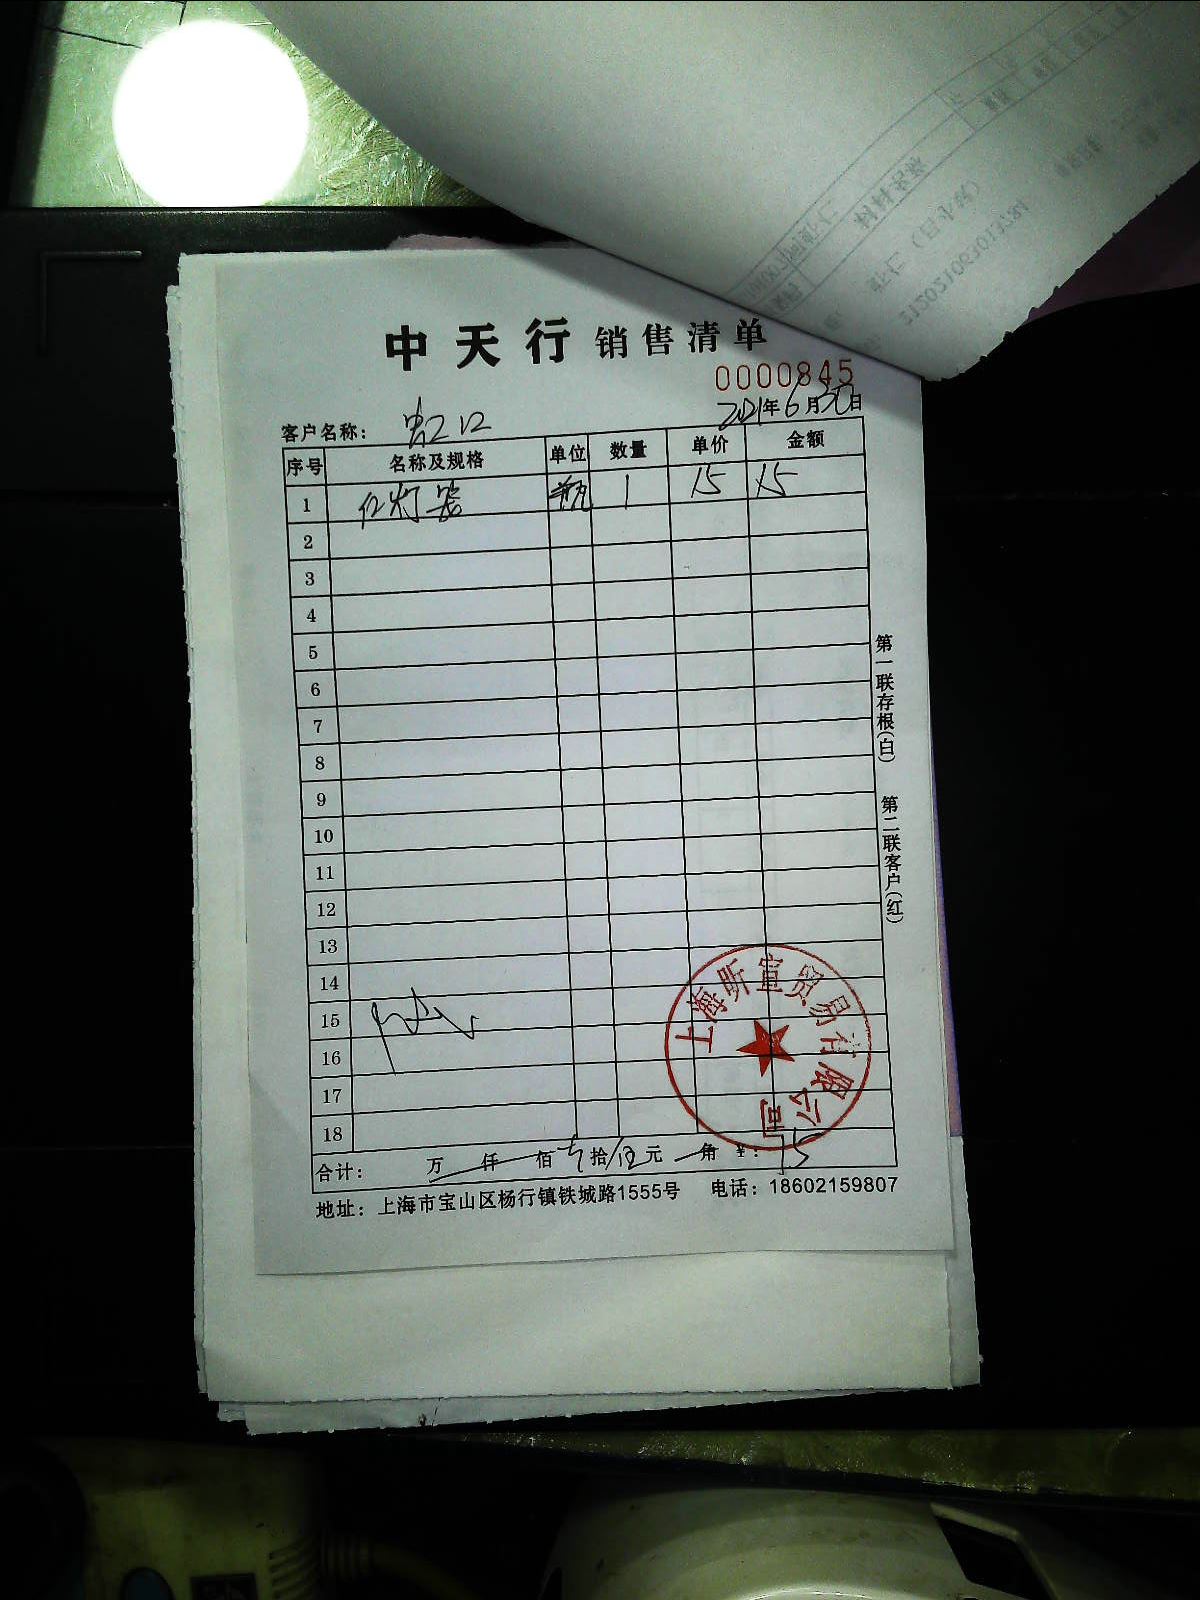 中天行 销售清单
0000845
2021年6月30日
客户名称： 虹口
序号 名称及规格 单位 数量 单价 金额
1 红灯笼 瓶 1 15 15
2
3
4
5
6
7
8
9
10
11
12
13
14
15
16
17
18
合计： 万 仟 佰 壹拾伍元 角 ¥：15
地址：上海市宝山区杨行镇铁城路1555号 电话：18602159807
第一联存根(白) 第二联客户(红)
上海昕宣贸易有限公司